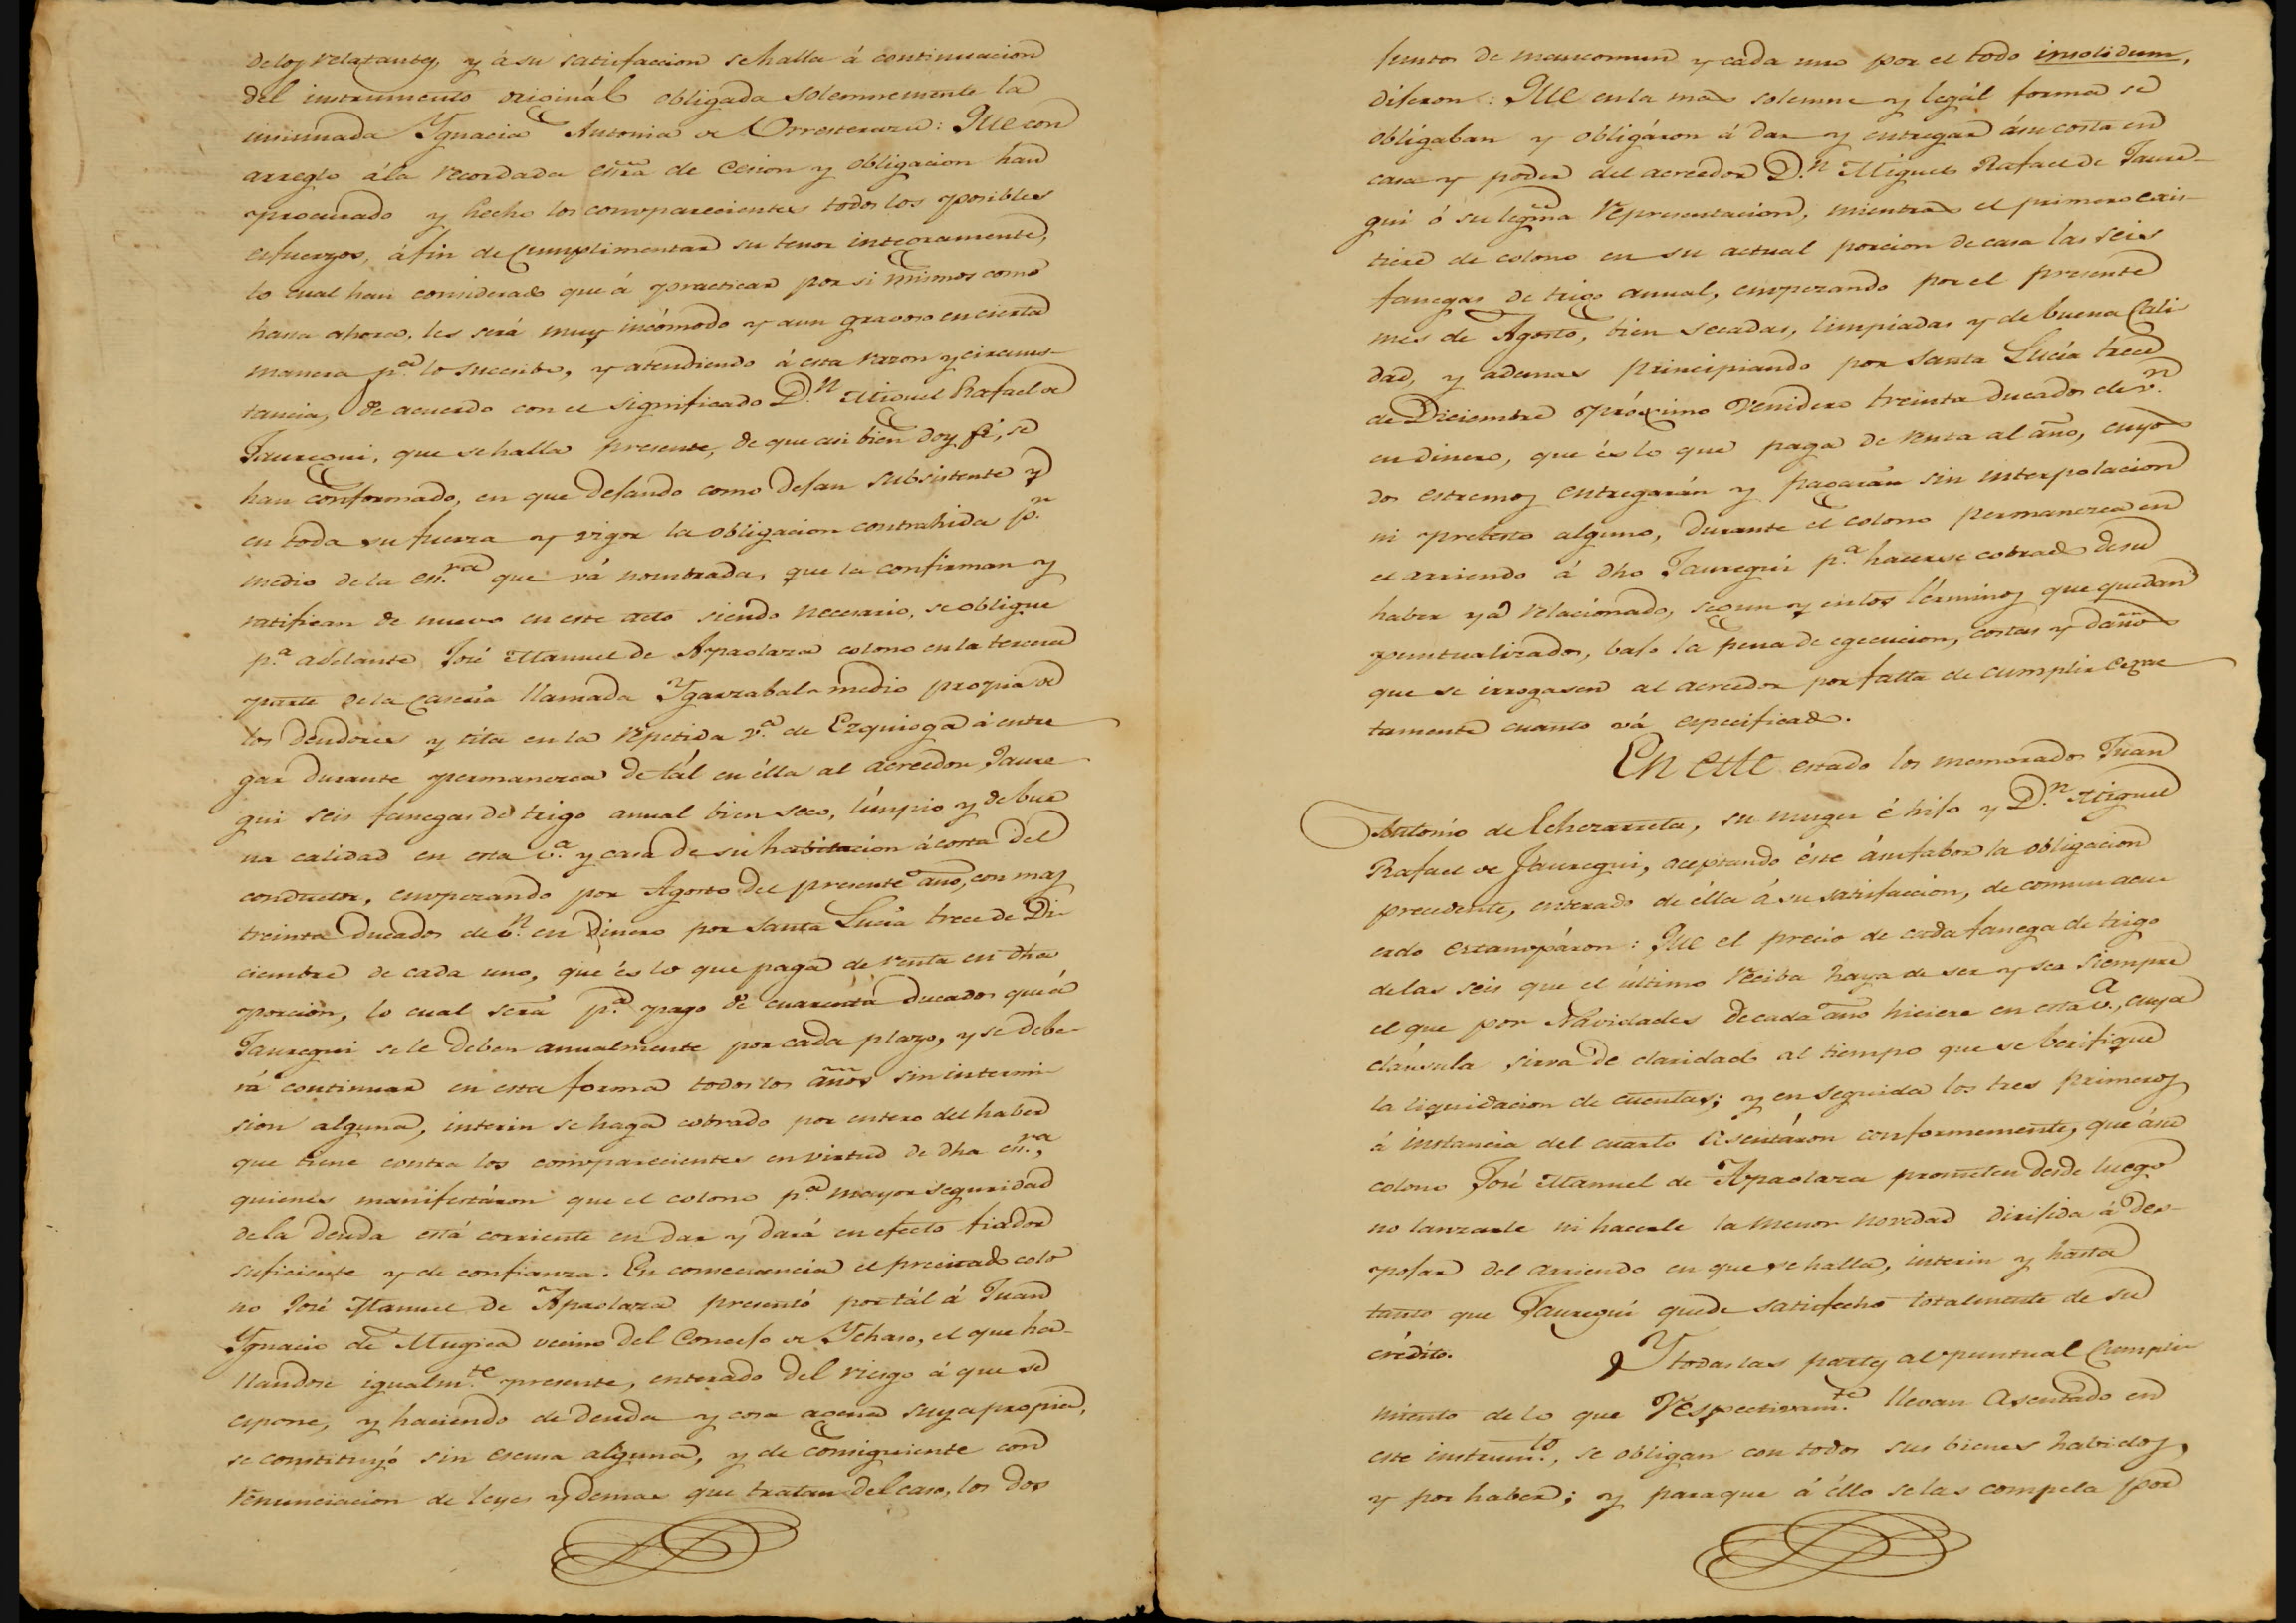 de los relatantes, y á su satisfaccion se halla á continuacion
del instrumento originál obligada solemnemente la
insinuada Ygnacia Antonia de Orresterazu: Que con
arreglo á la recordada esc̃ra de cesion y obligacion han
procurado y hecho los comparecientes todos los posibles
esfuerzos, á fin de cumplimentar su tenor integramente,
lo cual han considerado que á practicar por si mismos como
hasta ahora, les será muy incómodo y aun gravoso en cierta
manera p.ª lo sucesibo, y atendiendo á esta razon y circuns-
tancia, de acuerdo con el significado D.n Miguel Rafael de
Jauregui, que se halla presente, de que asi bien doy fé, se
han conformado, en que dejando como dejan subsistente y
en toda su fuerza y vigor la obligacion contrahida p.r
medio de la es.ra que vá nombrada, que la confirman y
ratifican de nuevo en este acto siendo necesario, se obligue
p.ª adelante José Manuel de Apaolaza colono en la tercera
parte de la caseria llamada Ygarzabal-medio propia de
los deudores y sita en la repetida v.ª de Ezquioga á entre
gar durante permanezca de tál en élla al acreedor Jaure
gui seis fanegas de trigo anual bien seco, limpio y de bue
na calidad en esta v.ª y casa de su habitacion á costa del
conductor, empezando por Agosto del presente año, con mas
treinta ducados de v.n en dinero por santa Lucia trece de Di-
ciembre de cada uno, que és lo que paga de renta en dha
porcion, lo cual será p.ª pago de cuarenta ducados que á
Jauregui se le deben anualmente por cada plazo, y se debe-
rá continuar en esta forma todos los años sin intermi
sion alguna, interin se haga cobrado por entero del haber
que tiene contra los comparecientes en virtud de dha es.ra,
quienes manifestáron que el colono p.ª mayor seguridad
de la deuda está corriente en dar y dará en efecto fiador
suficiente y de confianza. En consecuencia el precitado colo
no José Manuel de Apaolaza presentó por tál á Juan
Ygnacio de Mugica vecino del Concejo de Ychaso, el que ha-
llandose igualm.te presente, enterado del riesgo á que se
espone, y haciendo de deuda y cosa agena suya propia,
se constituyó sin escusa alguna, y de consiguiente con
renunciacion de leyes y demas que tratan del caso, los dos
juntos de mancomun y cada uno por el todo insolidum,
dijeron: Que en la mas solemne y legál forma se
obligaban y obligáron á dar y entregar á su costa en
casa y poder del acreedor D.n Miguel Rafael de Jaure-
gui ó su legma representacion, mientras el primero exis-
tiere de colono en su actual porcion de casa las seis
fanegas de trigo anual, empezando por el presente
mes de Agosto, bien secadas, limpiadas y de buena cali
dad, y ademas principiando por santa Lucia trece
de Diciembre próximo venidero treinta ducados de v.n
en dinero, que és lo que paga de renta al año, cuyos
dos estremos entregarán y pagarán sin interpolacion
ni pretesto alguno, durante el colono permanezca en
el arriendo á dho Jauregui p.ª hacerse cobrado de su
haber ya relacionado, segun y en los términos que quedan
puntualizados, bajo la pena de egecucion, costas y daños
que se irrogasen al acreedor por falta de cumplir exac
tamente cuanto vá especificado.
En este estado los memorados Juan
Antonio de Echezarreta, su muger é hijo y D.n Miguel
Rafael de Jauregui, aceptando éste á su fabor la obligacion
precedente, enterado de élla á su satisfaccion, de comun acu
erdo estampáron: Que el precio de cada fanega de trigo
de las seis que el último reciba haya de ser y sea siempre
el que por Navidades de cada año hiciere en esta v.ª, cuya
cláusula sirva de claridad al tiempo que se berifique
la liquidacion de cuentas; y en seguida los tres primeros
á instancia del cuarto asentáron conformemente, que á su
colono José Manuel de Apaolaza prometen desde luego
no lanzarle ni hacerle la menor novedad dirijida á des-
pojar del arriendo en que se halla, interin y hasta
tanto que Jauregui quede satisfecho totalmente de su
crédito.
Y todas las partes al puntual cumpli-
miento de lo que respectivam.te llevan asentado en
este instrum.to, se obligan con todos sus bienes habidos,
y por haber; y para que á éllo se las compela por